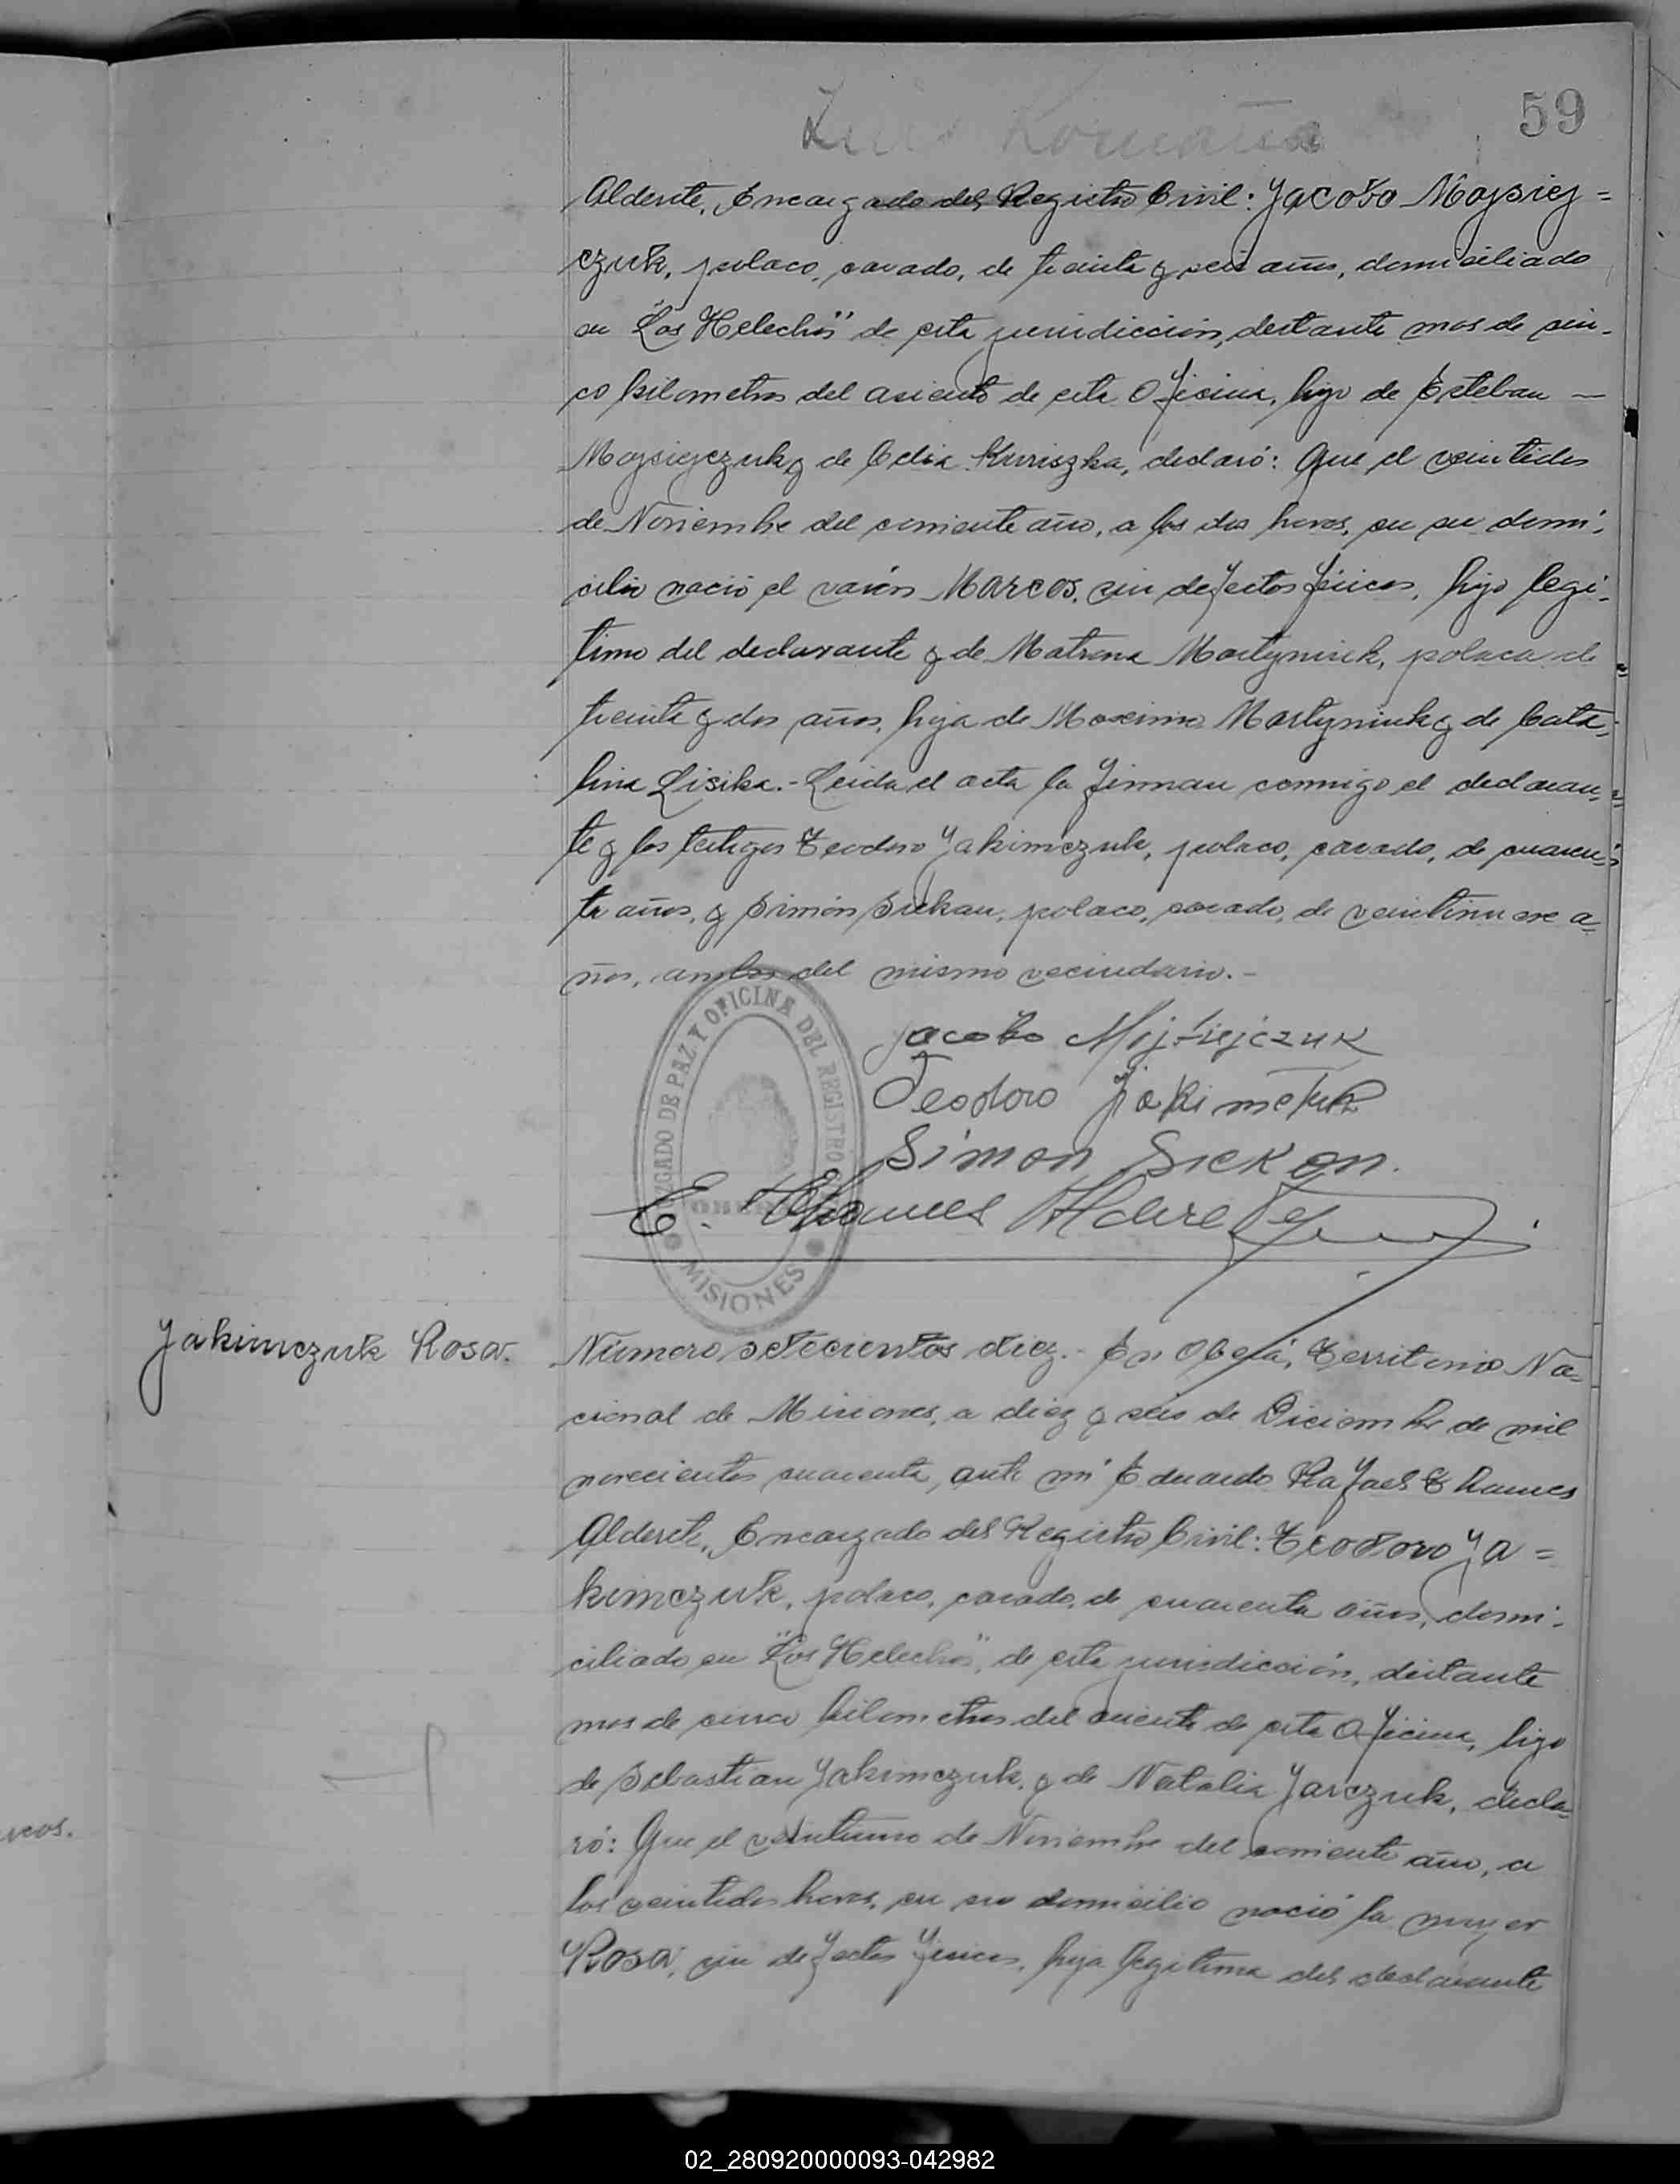 59
Alderete, Encargado del Registro Civil: Jacobo Mojsiej=
czuk, polaco, casado, de treinta y seis años, domiciliado
en "Los Helechos" de esta jurisdicción, distante mas de cin-
co kilometros del asiento de esta Oficina, hijo de Esteban —
Mojsiejczuk y de Celia Kuriszka, declaró: Que el veintidos
de Noviembre del corriente año, a las dos horas, en su domi-
cilio nació el varón Marcos, sin defectos fisicos, hijo legi-
timo del declarante y de Matrena Martyniuk, polaca de
treinta y dos años, hija de Maximo Martyniuk y de Cata-
lina Lisika.- Leida el acta la firman conmigo el declaran-
te y los testigos Teodoro Yakimczuk, polaco, casado, de cuaren-
ta años, y Simón Siekan, polaco, casado, de veintinueve a-
ños, ambos del mismo vecindario.-
JUZGADO DE PAZ Y OFICINA DEL REGISTRO
MISIONES
Jacobo
Teodoro
Simon Siekan.
E. Thames Alderete
Yakimczuk Rosa.
Número setecientos diez.- En Oberá, Territorio Na-
cional de Misiones, a diez y seis de Diciembre de mil
novecientos cuarenta, ante mi Eduardo Rafael Thames
Alderete, Encargado del Registro Civil: Teodoro Ya=
kimczuk, polaco, casado, de cuarenta años, domi-
ciliado en "Los Helechos", de esta jurisdicción, distante
mas de cinco kilometros del asiento de esta Oficina, hijo
de Sebastian Yakimczuk, y de Natalia Jarczuk, decla-
ró: Que el veintiuno de Noviembre del corriente año, a
las veintidos horas, en su domicilio nació la mujer
Rosa, sin defectos fisicos, hija legitima del declarante
02_280920000093-042982